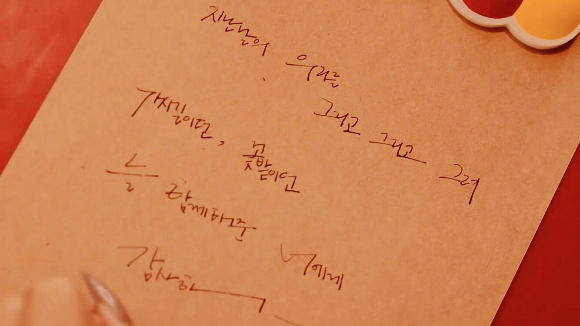 지난날의 우리를
그리고 그리고 그려
가시길이던, 꽃밭이언
늘 함께해준 너에게
감사하